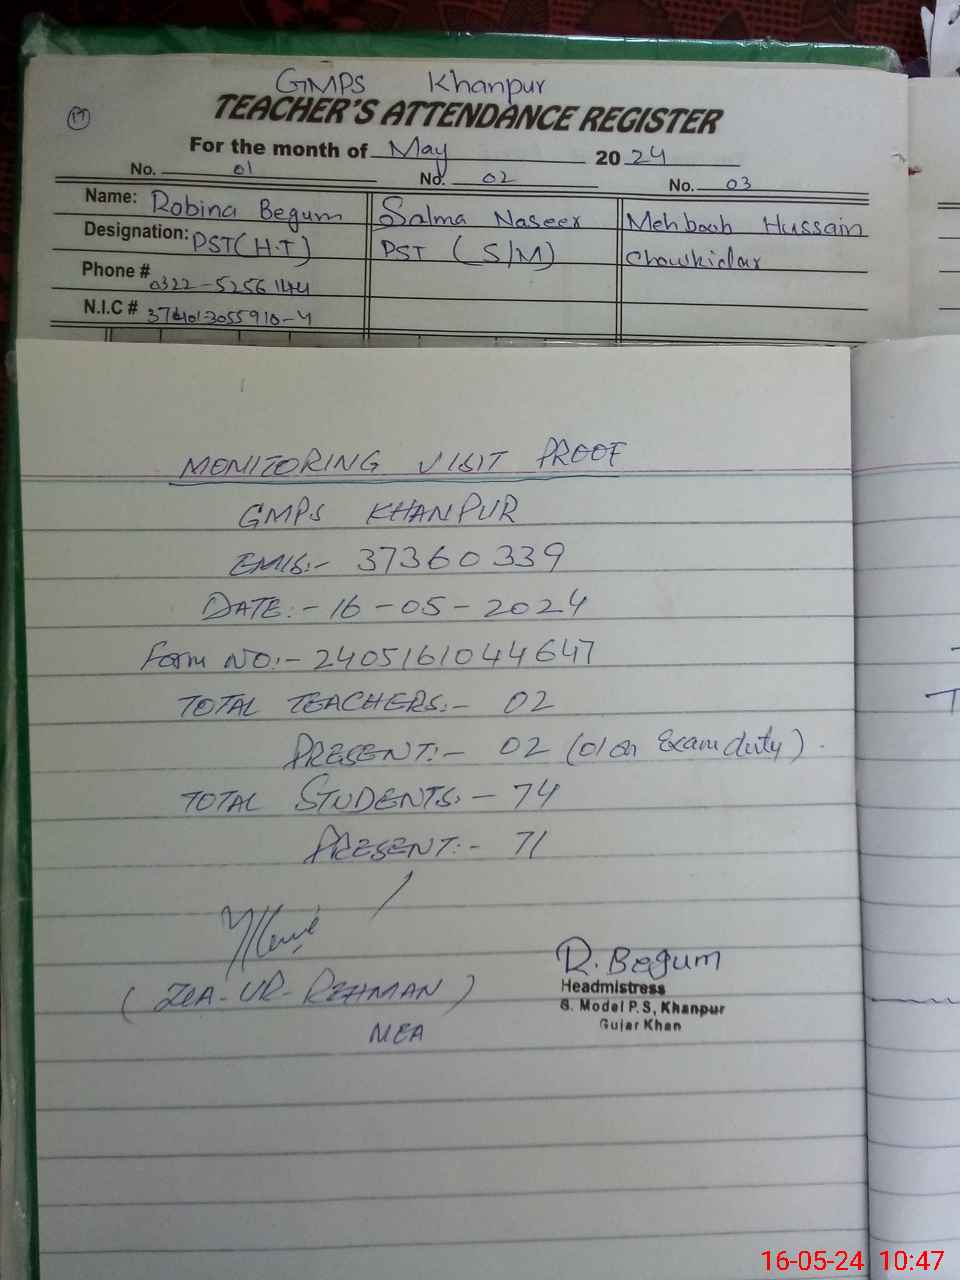 GMPS Khanpur
17
TEACHER'S ATTENDANCE REGISTER
For the month of May 2024
No. 01 No. 02 No. 03
Name: Robina Begum Salma Naseer Mehboob Hussain
Designation: PST (H.T) PST (S/M) Chowkidar
Phone # 0322-5256144
N.I.C #
MONITORING VISIT PROOF
GMPS KHANPUR
EMIS:- 37360339
DATE:- 16-05-2024
Form NO:- 2405161044647
TOTAL TEACHERS:- 02
PRESENT:- 02 (01 on Exam duty).
TOTAL STUDENTS:- 74
PRESENT:- 71
R. Begum
(ZIA-UR-REHMAN)
Headmistress
G. Model P.S, Khanpur
Gujar Khan
MEA
16-05-24 10:47